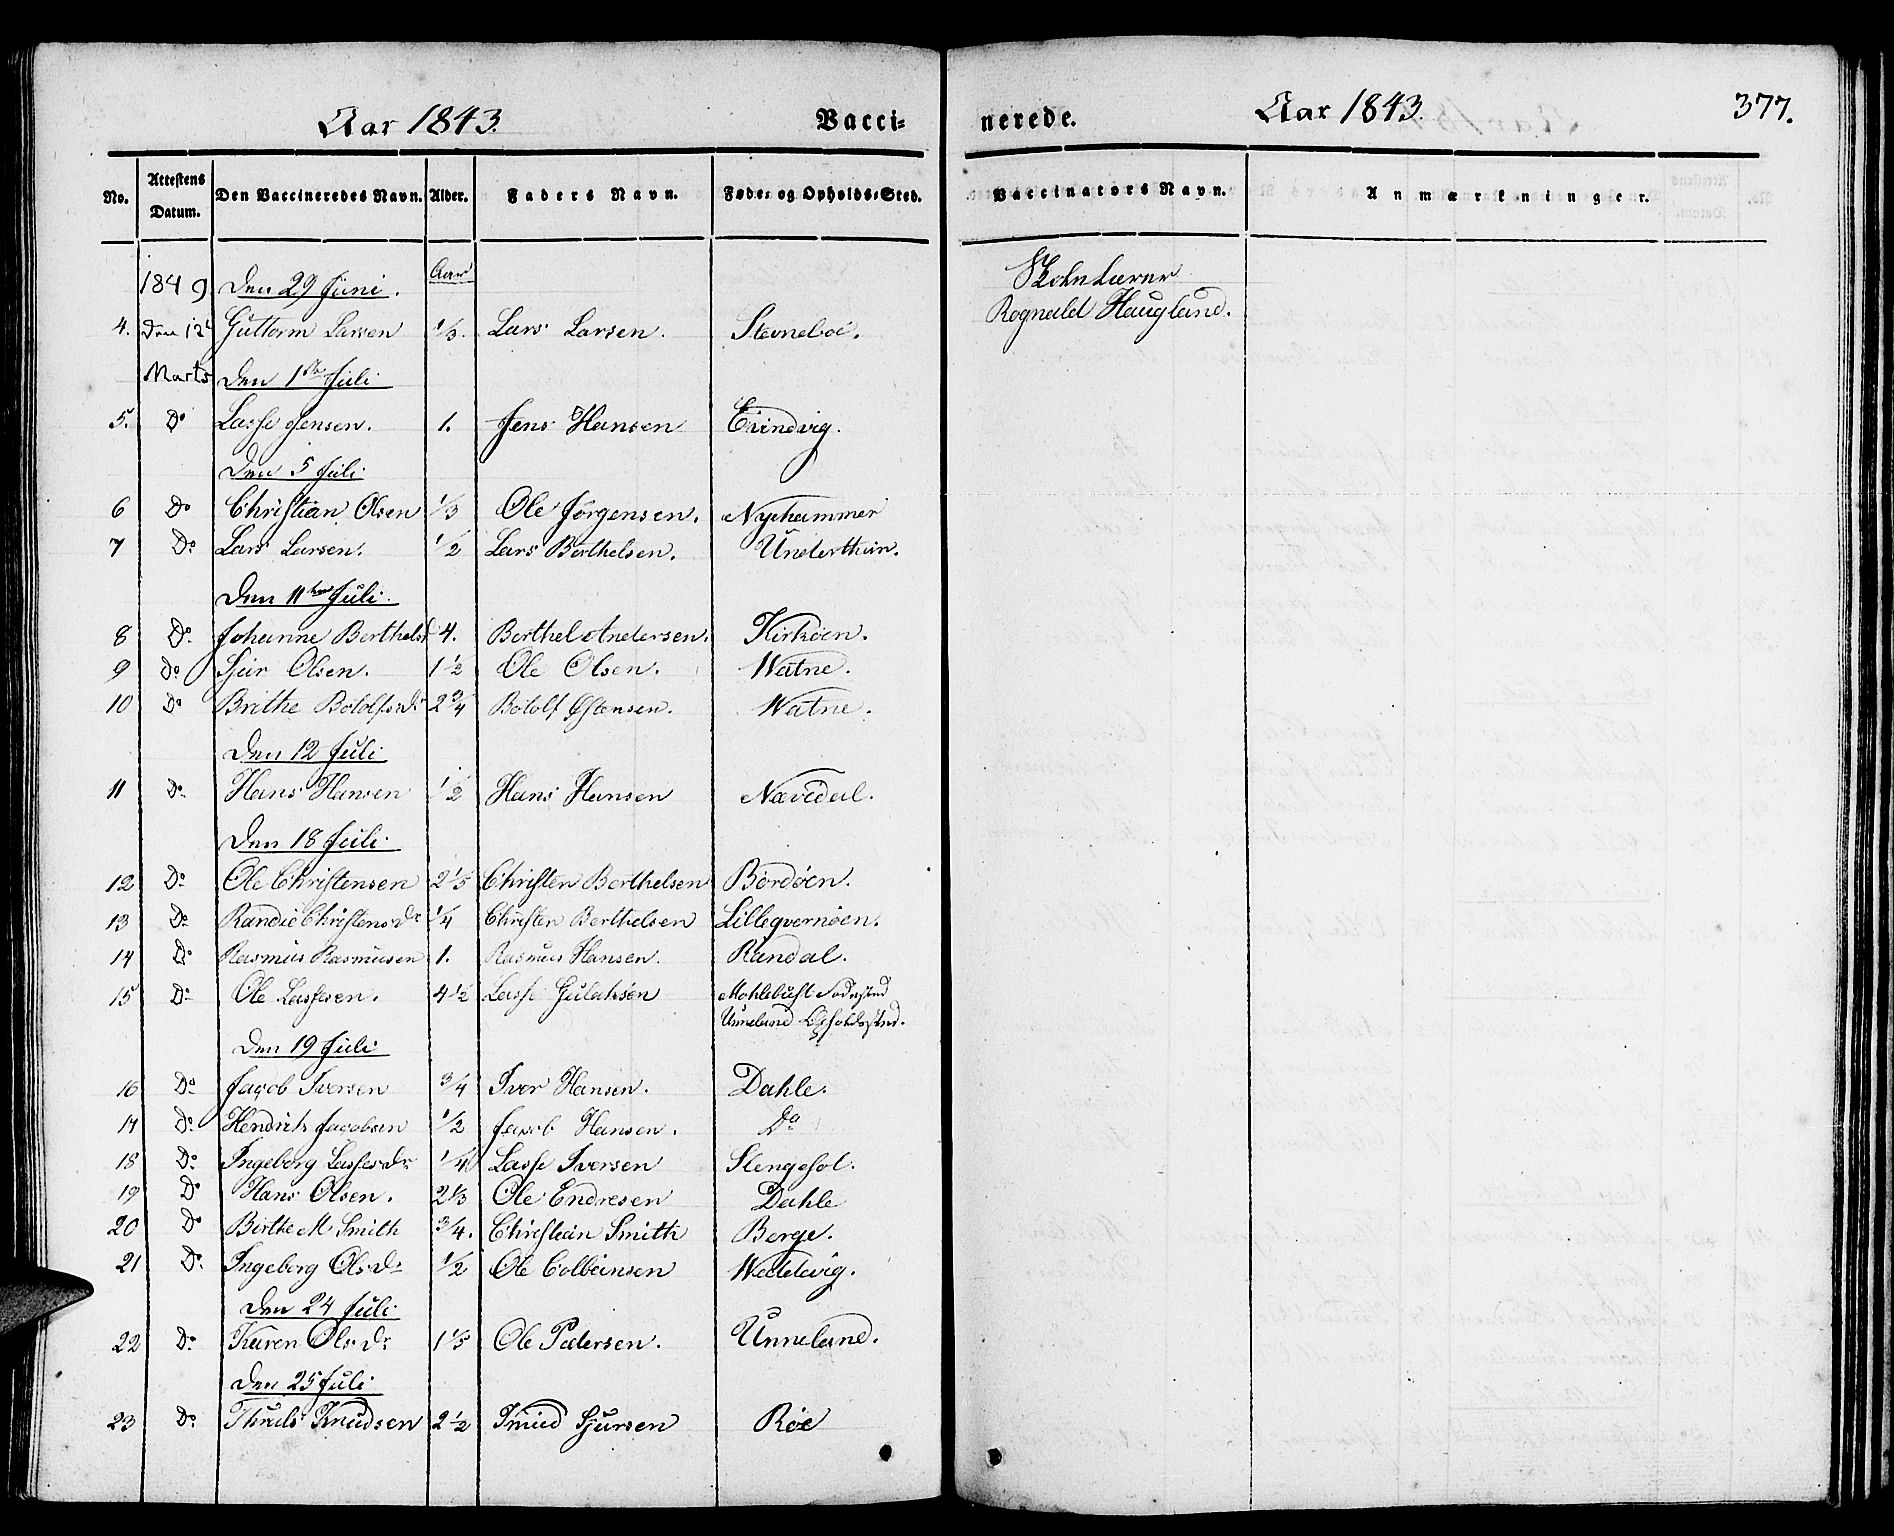 Aar 1843. Vacci- nerede. Aar 1843. 377.
No. Attestens Datum. Den Vaccineredes Navn. Alder. Faders Navn. Føde- og Opholds-Sted. Vaccinators Navn. Anmærkninger.
1849 Den 29 Juni. Aar Skolelærer
4. Den 12t Guttorm Larsen 1/3. Lars Larsen. Stevneboe. Rognald Haugland.
Marts Den 1ste Juli
5. Do Lasse Jensen. 1. Jens Hansen Evindvig.
Den 5 Juli
6 Do Christian Olsen 1/3 Ole Jörgensen. Nyehammer
7 Do Lars Larsen. 1/2 Lars Berthelsen. Underthun.
Den 11te Juli.
8 Do Johanne Berthelsd 4. Berthel Andersen. Kirköen.
9 Do Sjur Olsen. 1 1/2 Ole Olsen. Watne.
10 Do Brithe Botolfsdr 2 3/4 Botolf Östensen. Watne.
Den 12 Juli
11 Do Hans Hansen 1/2 Hans Hansen Nævedal.
Den 18 Juli
12 Do Ole Christensen 2 1/5 Christen Berthelsen Bordöen.
13 Do Randie Christensdr 1/4 Christen Berthelsen Lillegvernöen.
14 Do Rasmus Rasmusen 1. Rasmus Hansen. Randal.
15 Do Ole Lassesen. 4 1/2 Lasse Gulaksen Mohlebust Födested
Unneland Opholdssted.
Den 19 Juli
16 Do Jacob Iversen 3/4 Iver Hansen. Dahle.
17 Do Hendrik Jacobsen 1/2 Jacob Hansen. Do
18 Do Ingeborg Lassesdr 1/4 Lasse Iversen Slengesol.
19 Do Hans Olsen. 2 1/3 Ole Endresen Dahle
20 Do Birthe M Smith 3/4. Christian Smith Berge.
21 Do Ingeborg Olsdr 1/2 Ole Colbeinsen Wadelvig.
Den 24 Juli
22 Do Karen Olsdr 1 1/5 Ole Pedersen. Unneland.
Den 25 Juli
23 Do Thruls Knudsen 2 1/2 Knud Sjursen Röe